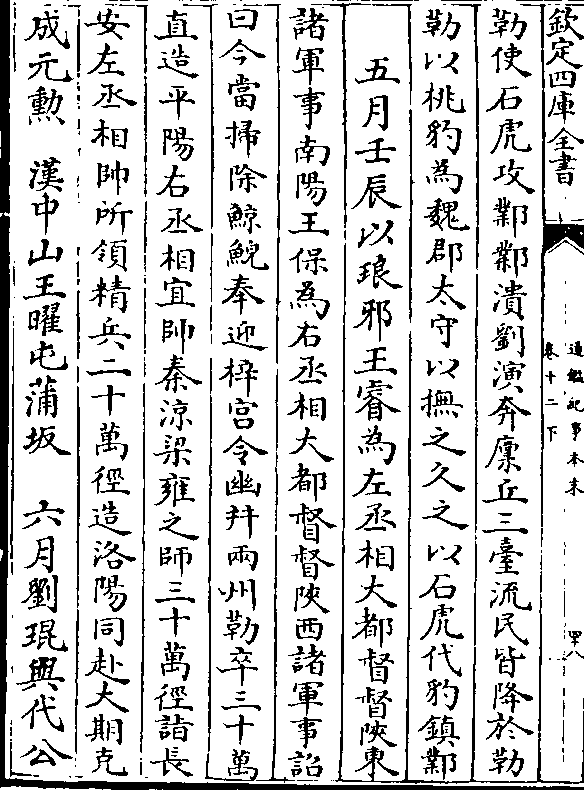 欽定四庫全書
通鑑紀事本末
卷十二下
四八
勒使石虎攻鄴鄴潰劉演奔廩丘三臺流民皆降於勒
勒以桃豹為魏郡太守以撫之久之以石虎代豹鎮鄴
五月壬辰以琅邪王睿為左丞相大都督督陜東
諸軍事南陽王保為右丞相大都督督陜西諸軍事詔
曰今當掃除鯨鯢奉迎梓宮令幽并兩州勒卒三十萬
直造平陽右丞相宜帥秦涼梁雍之師三十萬徑詣長
安左丞相帥所領精兵二十萬徑造洛陽同赴大期克
成元勲　漢中山王曜屯蒲坂　六月劉琨與代公